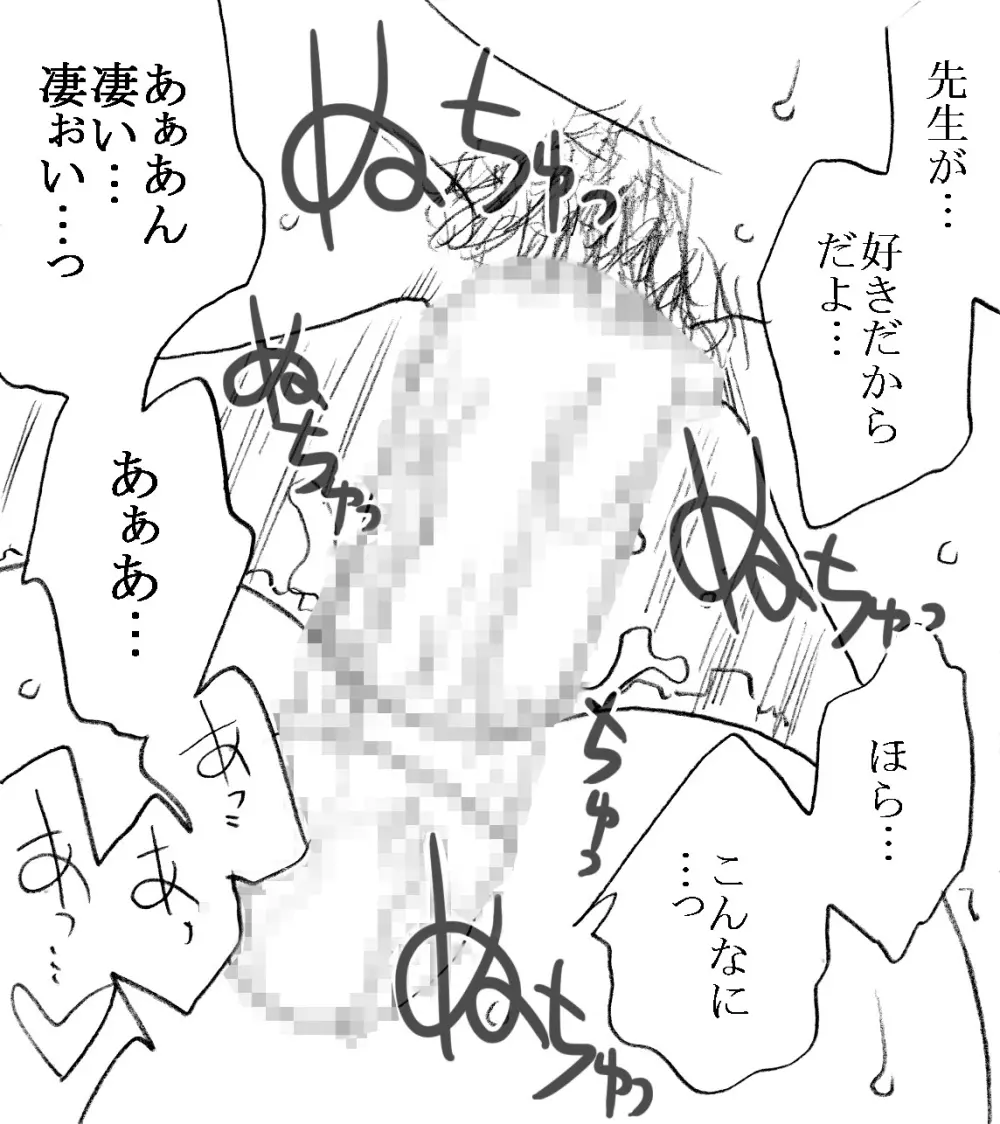 先生が…
好きだから
だよ…
ほら…
こんなに
…っ
あぁあん
凄い…
凄ぉい…っ
あぁあ…
あっ
あっ
あっ…
ぬちゅっ
ぬちゅっ
ぬちゅっ
ちゅっ
ぬちゅっ